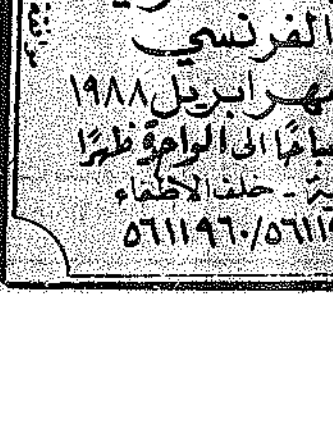 الفرنسي
شهر ابريل ١٩٨٨
صباحًا الى الواحدة ظهرًا
خلف الاطفاء
٥٦١١٩٦٠/٥٦١١٩